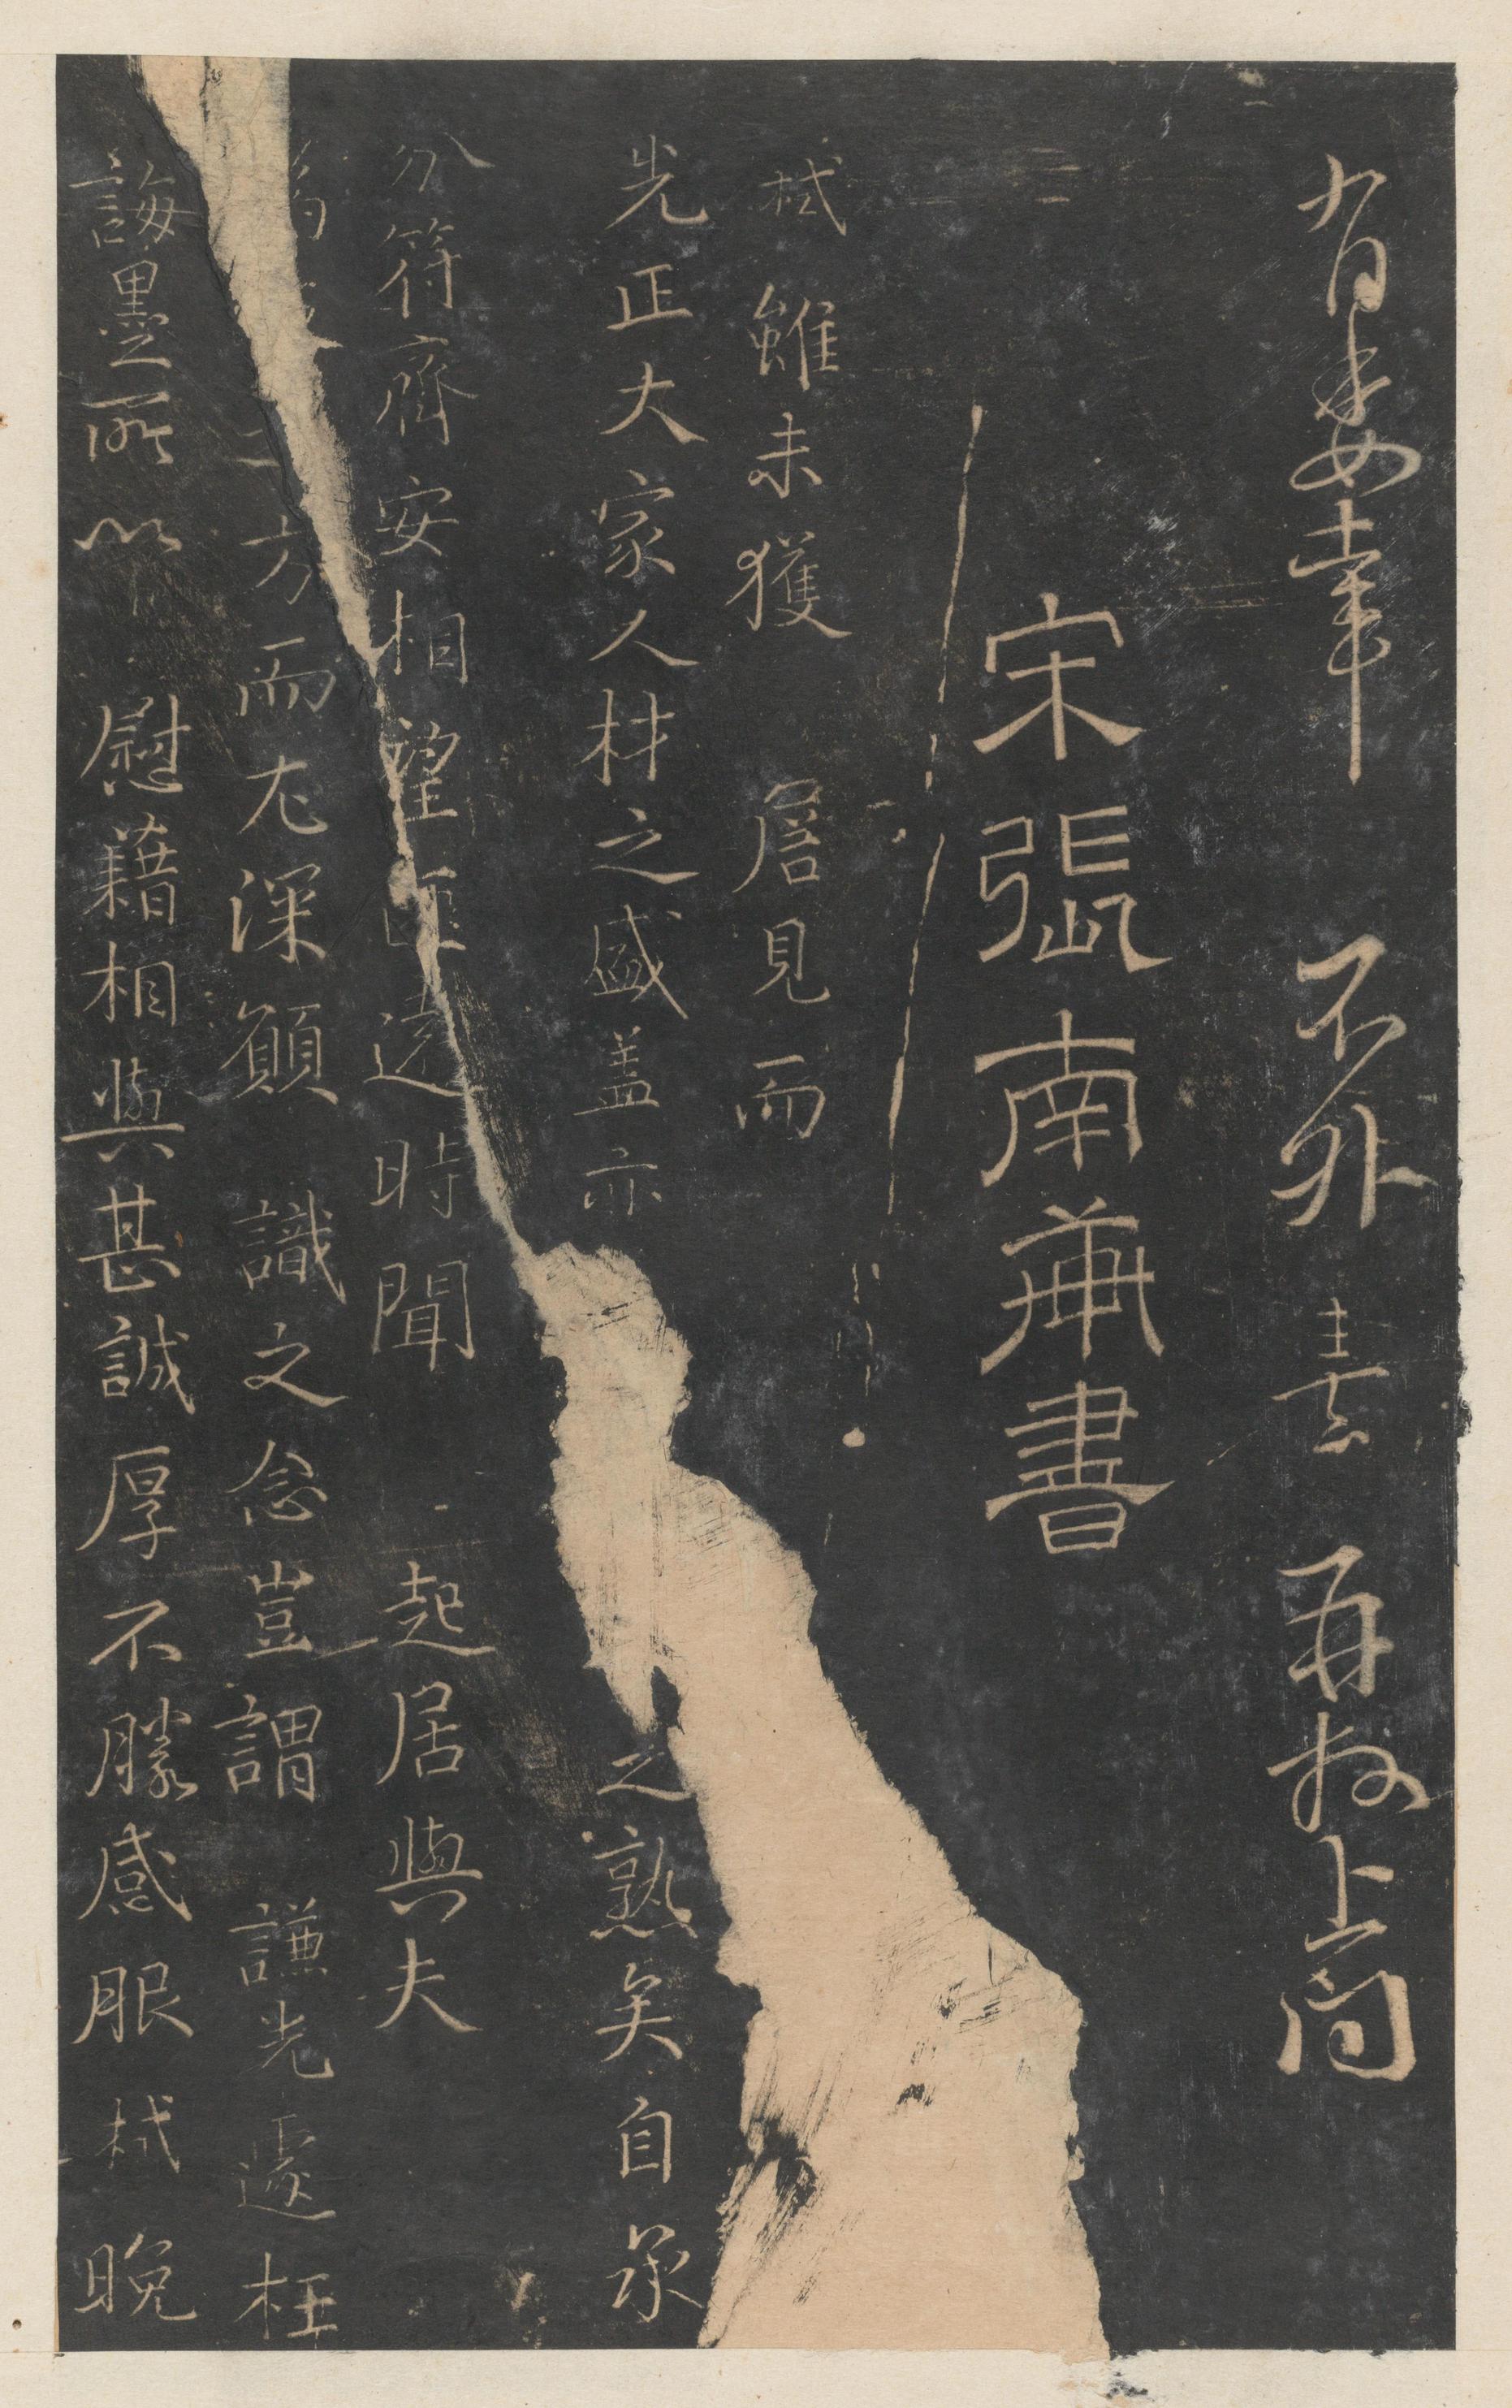 有委幸 不外 熹 再拜上問
宋張南軒書
栻 雖未獲 詹見而
光正大家人材之盛盖亦 之熟矣自承
分符齊安相望匪遠時聞 起居與夫
方而尤深願 識之念豈謂 謙光遽枉
誨墨所以 慰藉相與甚誠厚不勝感服栻晚